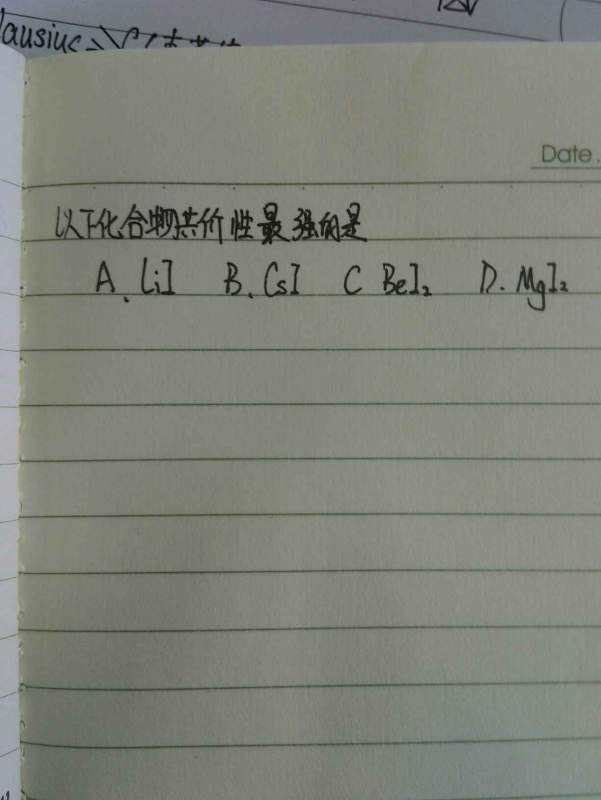 lausius
Date.
以下化合物共价性最强的是
A. LiI B. CsI C BeI₂ D. MgI₂